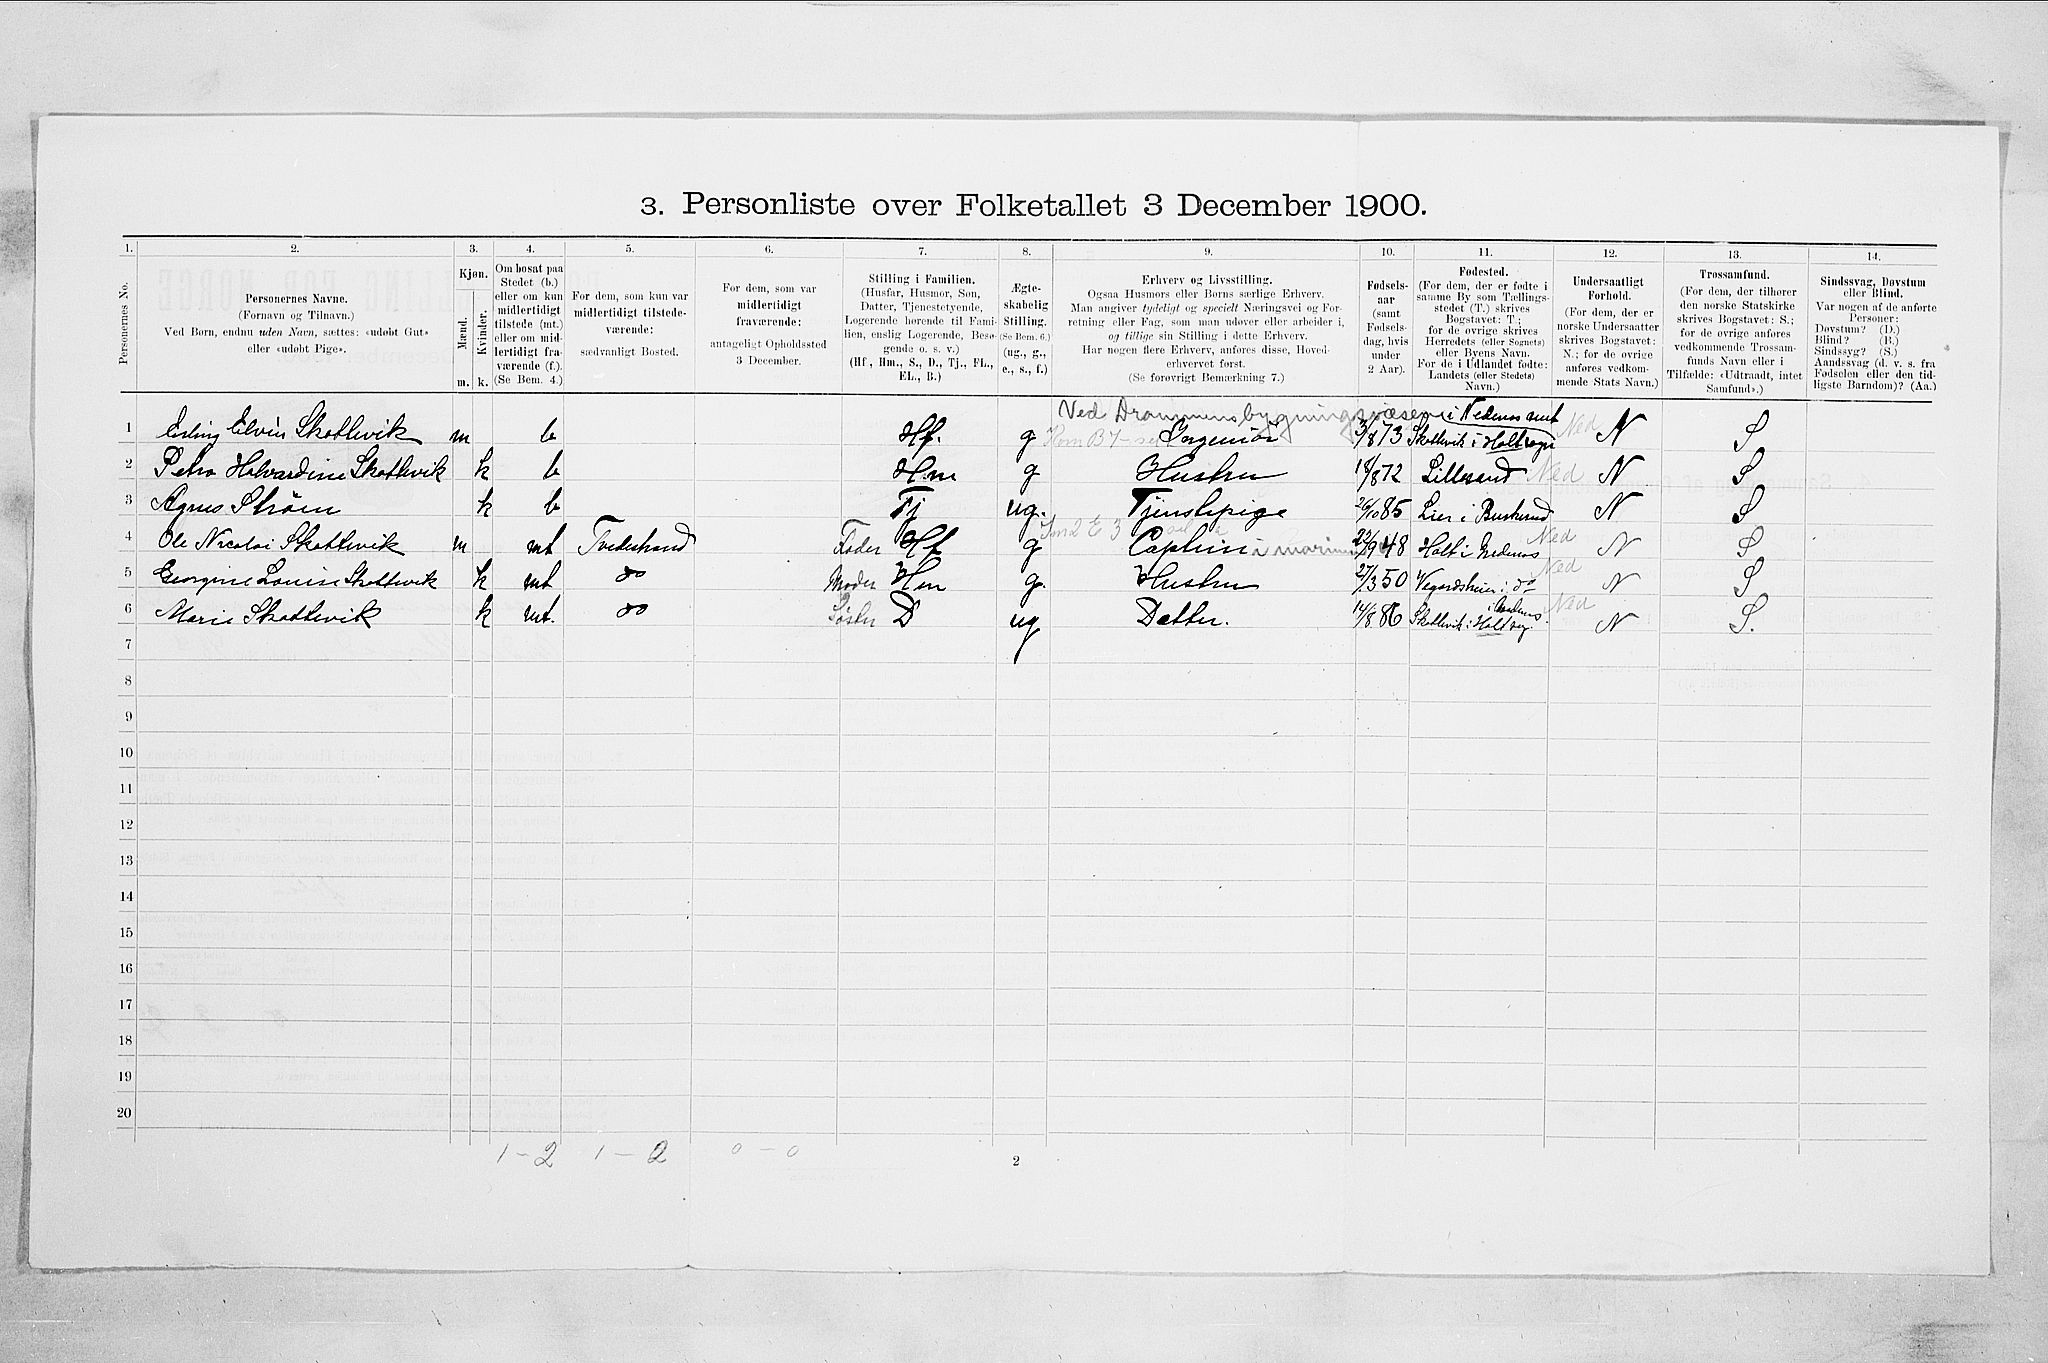 3. Personliste over Folketallet 3 December 1900.
1. 2. 3. 4. 5. 6. 7. 8. 9. 10. 11. 12. 13. 14.
Personernes No.
Personernes Navne.
(Fornavn og Tilnavn.)
Ved Børn, endnu uden Navn, sættes: «udøbt Gut»
eller «udøbt Pige».
Kjøn.
Mænd.
Kvinder.
m. k.
Om bosat paa
Stedet (b.)
eller om kun
midlertidigt
tilstede (mt.)
eller om mid-
lertidigt fra-
værende (f.).
(Se Bem. 4.)
For dem, som kun var
midlertidigt tilstede-
værende:
sædvanligt Bosted.
For dem, som var
midlertidigt
fraværende:
antageligt Opholdssted
3 December.
Stilling i Familien.
(Husfar, Husmor, Søn,
Datter, Tjenestetyende,
Logerende hørende til Fami-
lien, enslig Logerende, Besø-
gende o. s. v.)
(Hf., Hm., S., D., Tj., FL.,
EL., B.)
Ægte-
skabelig
Stilling.
(Se Bem. 6.)
(ug., g.,
e., s., f.)
Erhverv og Livsstilling.
Ogsaa Husmors eller Børns særlige Erhverv.
Man angiver tydeligt og specielt Næringsvei og For-
retning eller Fag, som man udøver eller arbeider i,
og tillige sin Stilling i dette Erhverv.
Har nogen flere Erhverv, anføres disse, Hoved-
erhvervet først.
(Se forøvrigt Bemærkning 7.)
Fødsels-
aar
(samt
Fødsels-
dag, hvis
under
2 Aar).
Fødested.
(For dem, der er fødte i
samme By som Tællings-
stedet (T.) skrives
Bogstavet: T.;
for de øvrige skrives
Herredets (eller Sognets)
eller Byens Navn.
For de i Udlandet fødte:
Landets (eller Stedets)
Navn.)
Undersaatligt
Forhold.
(For dem, der er
norske Undersaatter
skrives Bogstavet:
N.; for de øvrige
anføres vedkom-
mende Stats Navn.)
Trossamfund.
(For dem, der tilhører
den norske Statskirke
skrives Bogstavet: S.;
for de øvrige anføres
vedkommende Trossam-
funds Navn eller i
Tilfælde: «Udtraadt, intet
Samfund».)
Sindssvag, Døvstum
eller Blind.
Var nogen af de anførte
Personer:
Døvstum? (D.)
Blind? (B.)
Sindssyg? (S.)
Aandssvag (d. v. s. fra
Fødselen eller den tid-
ligste Barndom)? (Aa.)
Ved Drammens bygningsvæsen i Nedenes amt
1 Erling Elvin Skottevik m b Hf. g Ingeniør 3/8 73 Skottevik i Holt sogn Ned N S
2 Petra Halvardine Skottevik k b Hm g Hustru 18/8 72 Lillesand Ned N S
3 Agnes Strøm k b Tj ug. Tjenstepige 26/10 85 Lier i Buskerud N S
4 Ole Nicolai Skottevik m mt Tvedestrand Fader Hf g Captein i marinen 22/9 48 Holt i Nedenes Ned N S
5 Georgine Louise Skottevik k mt do Moder Hm g. Hustru 27/3 50 Vegardsheien i do Ned N S
6 Marie Skottevik k mt. do Søster D ug Datter. 14/8 86 Skottevik i Holt sogn i Nedenes Ned N S.
7
8
9
10
11
12
13
14
15
16
17
18
19
20
1 – 2 1 – 2 0 – 0
2